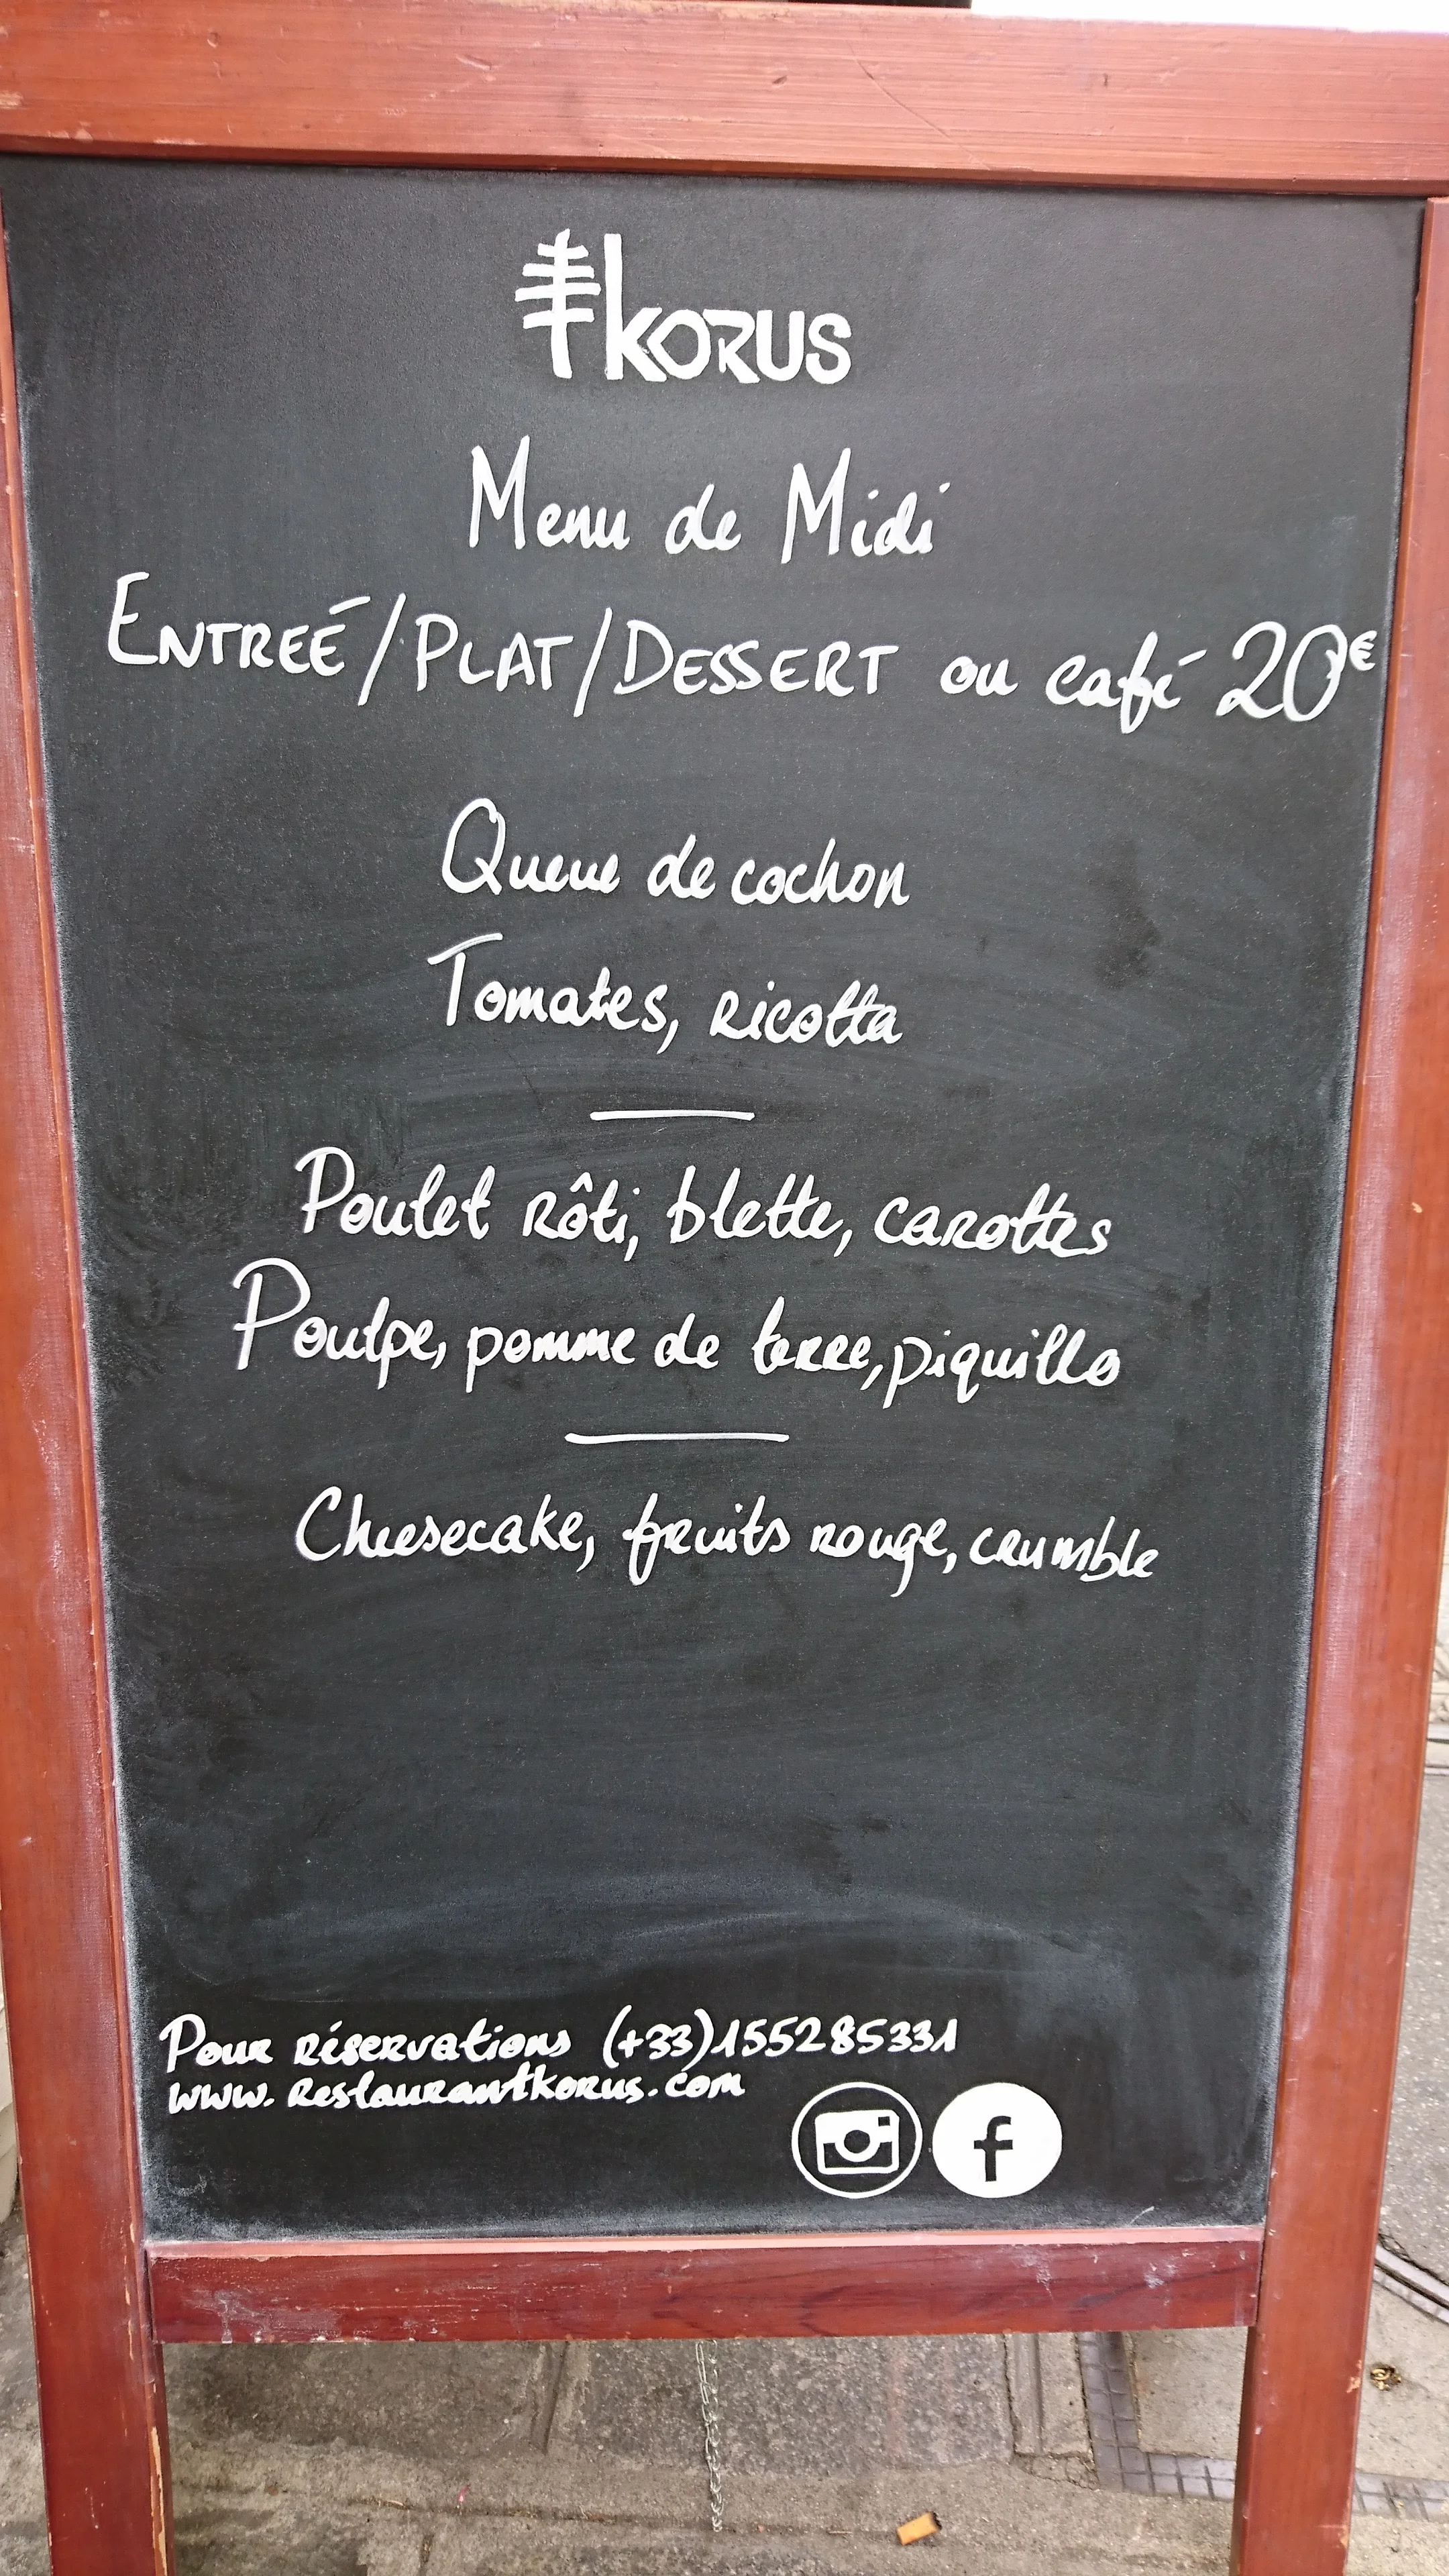 KORUS
Menu de Midi
ENTREÉ/PLAT/DESSERT ou café 20€
Queue de cochon
Tomates, ricotta
Poulet rôti, blette, carottes
Poulpe, pomme de terre, piquillo
Cheesecake, fruits rouge, crumble
Pour réservations (+33)155285331
www.restaurantkorus.com
f